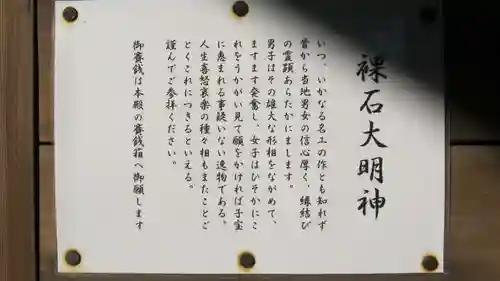 裸石大明神
いつ、いかなる名工の作とも知れず
昔から当地男女の信心厚く、縁結び
の霊顕あらたかにまします。
男子はその雄大な形相をながめて、
ますます発奮し、女子はひそかにこ
れをうかがい見て願をかければ子宝
に恵まれる事疑いない逸物である。
人生喜怒哀楽の種々相もまたことご
とくこれにつきるといえる。
謹んでご参拝ください。
御賽銭は本殿の賽銭箱へ御願します